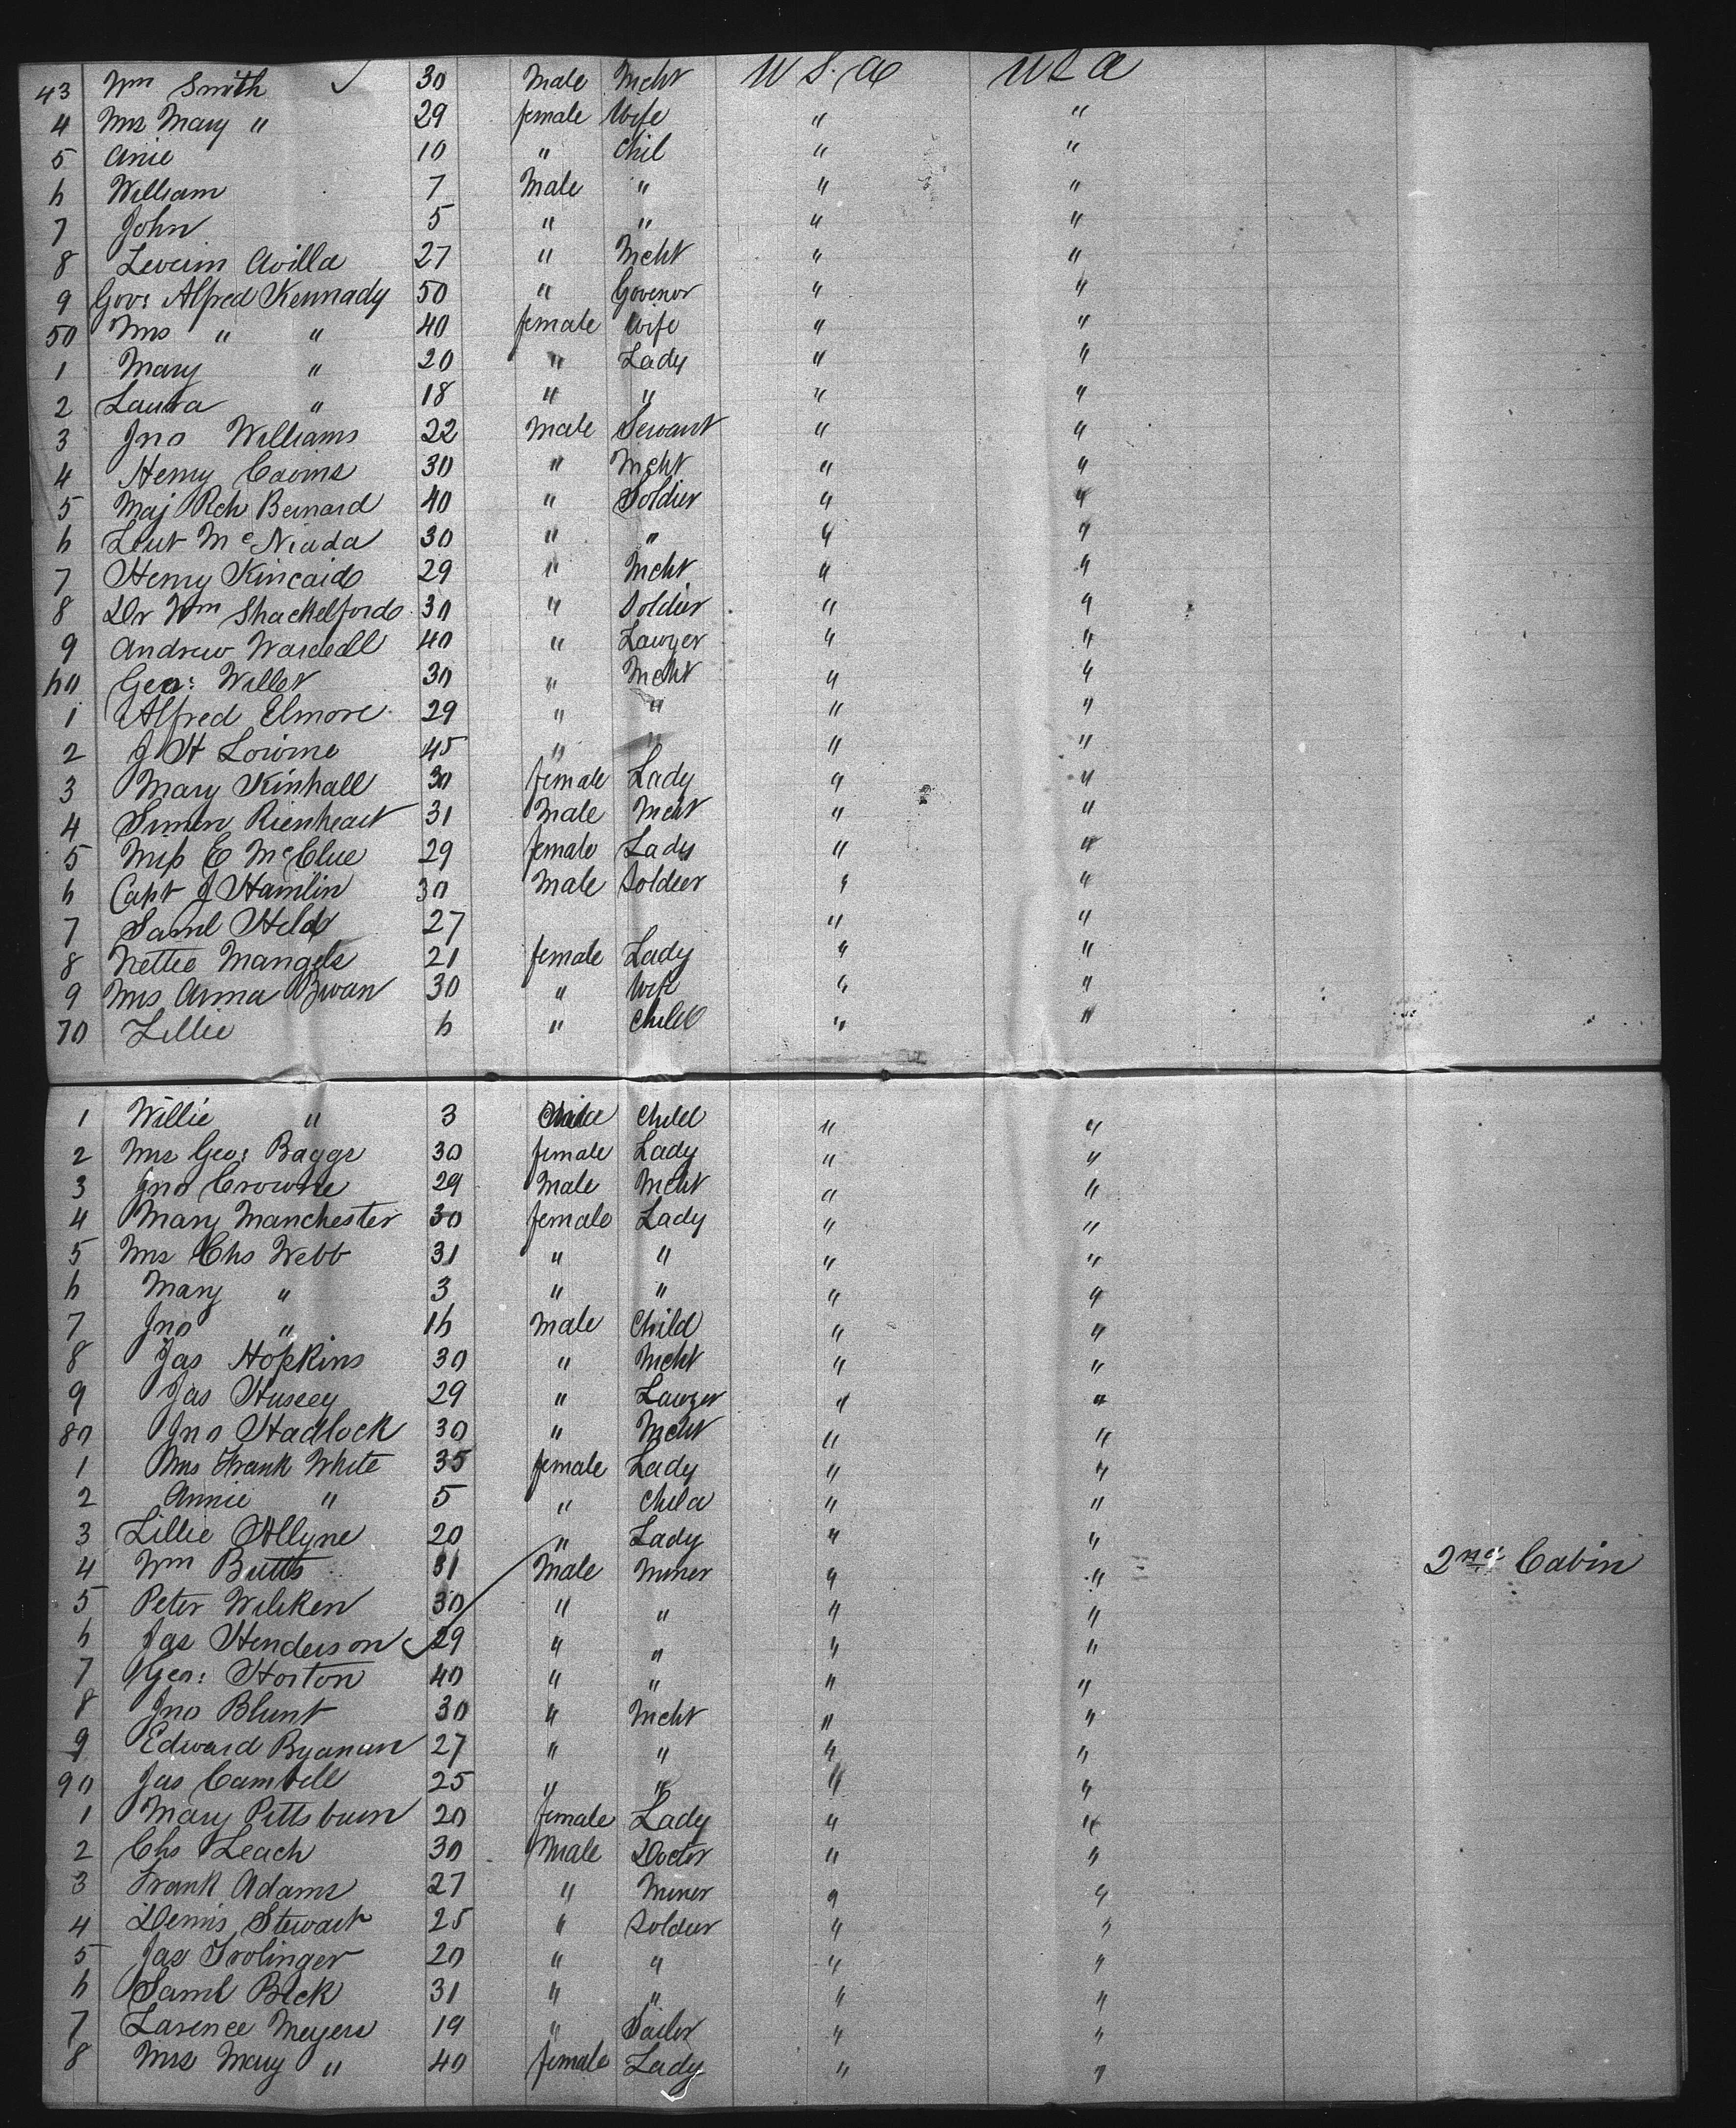 43 Wm Smith ✓ 30 Male Mcht U S. A U S A
4 Mrs Mary " 29 female Wife " "
5 Anie 10 " Chil " "
6 William 7 Male " " "
7 John 5 " " " "
8 Avilla 27 " Mcht " "
9 Gov: Alfred Kennady 50 " Govenor " "
50 Mrs " " 40 female Wife " "
1 Mary " 20 " Lady " "
2 Laura " 18 " " " "
3 Jno Williams 22 Male Servant " "
4 Henry 30 " Mcht " "
5 Maj Rch Bernard 40 " Soldier " "
6 Leut 30 " " " "
7 Henry Kincaid 29 " Mcht " "
8 Dr Wm Shackelford 30 " Soldier " "
9 Andrew Wardell 40 " Lawyer " "
60 Geo: Willet 30 " Mcht " "
1 Alfred Elmore 29 " " " "
2 J H 45 " " " "
3 Mary 30 female Lady " "
4 Simon Rienheart 31 Male Mcht " "
5 Miss E McClue 29 female Lady " "
6 Capt J Hamlin 30 Male Soldier " "
7 Saml Held 27 " "
8 Nettie Mangels 21 female Lady " "
9 Mrs Anna 30 " Wife " "
70 Lillie 6 " Child " "
1 Willie " 3 Child " "
2 Mrs Geo: Baggs 30 female Lady " "
3 Jno Crowne 29 Male Mcht " "
4 Mary Manchester 30 female Lady " "
5 Mrs Chs Webb 31 " " " "
6 Mary " 3 " " " "
7 Jno " 16 Male Child " "
8 Jas Hopkins 30 " Mcht " "
9 Jas Huscey 29 " Lawyer " "
80 Jno Hadlock 30 " Mcht " "
1 Mrs Frank White 35 female Lady " "
2 Annie " 5 " Child " "
3 Lillie Allyne 20 " Lady " "
4 Wm Butts 31 Male Miner " " 2nd Cabin
5 Peter Wilken 30 " " " "
6 Jas Henderson 29 " " " "
7 Geo: Horton 40 " " " "
8 Jno Blunt 30 " Mcht " "
9 Edward Byanan 27 " " " "
90 Jas Cambell 25 " " " "
1 Mary Pittsburn 20 female Lady " "
2 Chs Leach 30 Male Doctor " "
3 Frank Adams 27 " Miner " "
4 Dennis Stewart 25 " Soldier " "
5 Jas Trolinger 20 " " " "
6 Saml Beck 31 " " " "
7 Larence Meyers 19 " Sailor " "
8 Mrs Mary " 40 female Lady " "